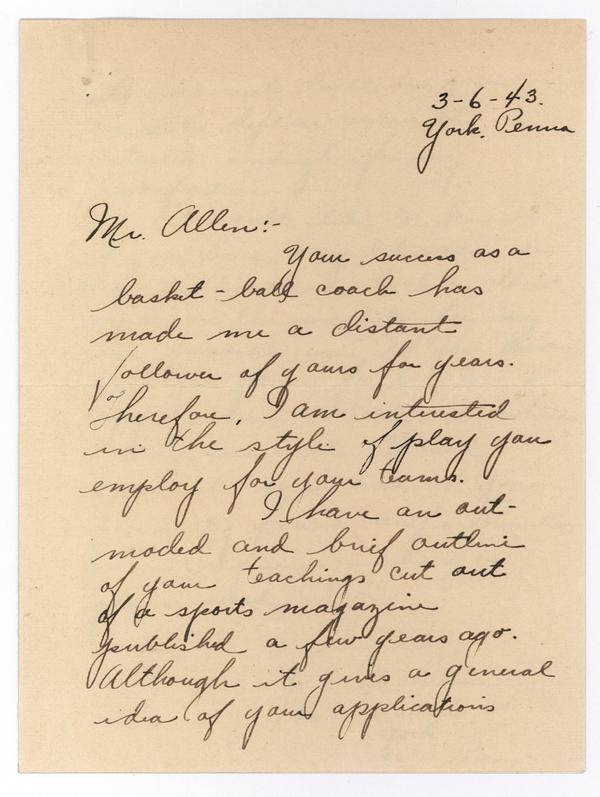 3-6-43.
York, Penna
Mr. Allen:-
Your success as a
basket-ball coach has
made me a distant
follower of yours for years.
Therefore, I am interested
in the style of play you
employ for your teams.
I have an out-
moded and brief outline
of your teachings cut out
of a sports magazine
published a few years ago.
Although it gives a general
idea of your applications